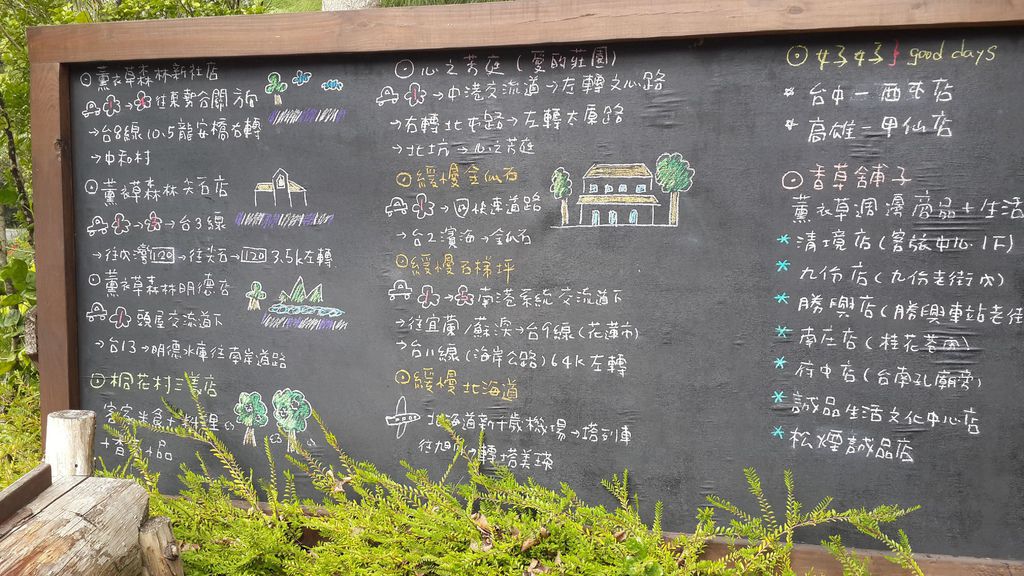 ⊙薰衣草森林新社店
往東勢谷關方向
→台8線10.5龍安橋右轉
→中和村
⊙薰衣草森林尖石店
→台3線
→往內灣120→往尖石→120 3.5k左轉
⊙薰衣草森林明德店
頭屋交流道下
→台13→明德水庫往南岸道路
⊙桐花村三義店
客家美食+料理
+香草+品
⊙心之芳庭(愛的莊園)
→中港交流道→左轉文心路
→右轉北屯路→左轉太原路
→北坑→心之芳庭
⊙緩慢金瓜石
快速道路
→台2濱海→金瓜石
⊙緩慢石梯坪
南港系統交流道下
→往宜蘭/蘇澳→台9線(花蓮市)
→台11線(海岸公路)64K左轉
⊙緩慢北海道
北海道新千歲機場→搭列車
往旭川→轉搭美瑛
⊙好好 good days
*台中一西屯店
*高雄一甲仙店
⊙香草舖子
薰衣草週邊商品+生活
*清境店(客旅中心1F)
*九份店(九份老街內)
*勝興店(勝興車站老街
*南庄店(桂花巷內)
*府中店(台南孔廟旁)
*誠品生活文化中心店
*松煙誠品店